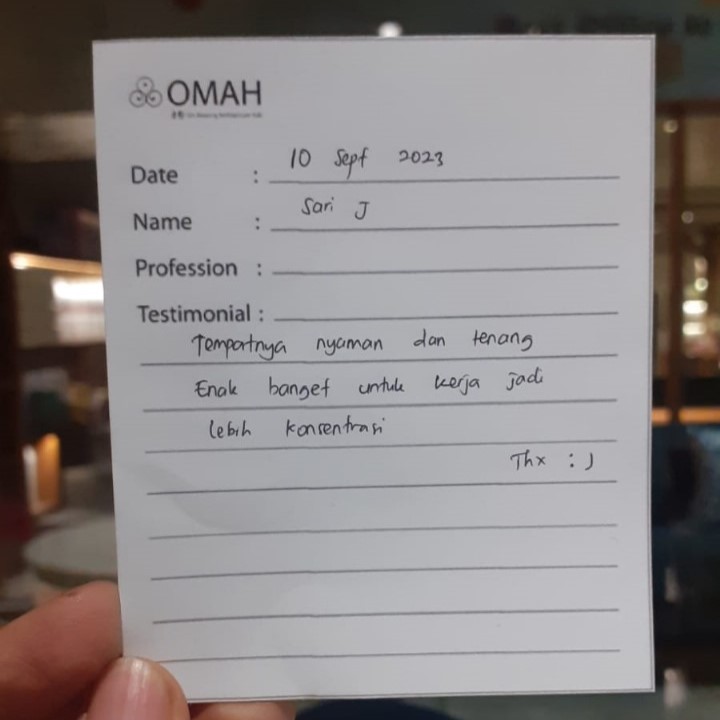 OMAH
Date : 10 Sept 2023
Name : Sari J
Profession :
Testimonial :
Tempatnya nyaman dan tenang
Enak banget untuk kerja jadi
lebih konsentrasi
Thx :)